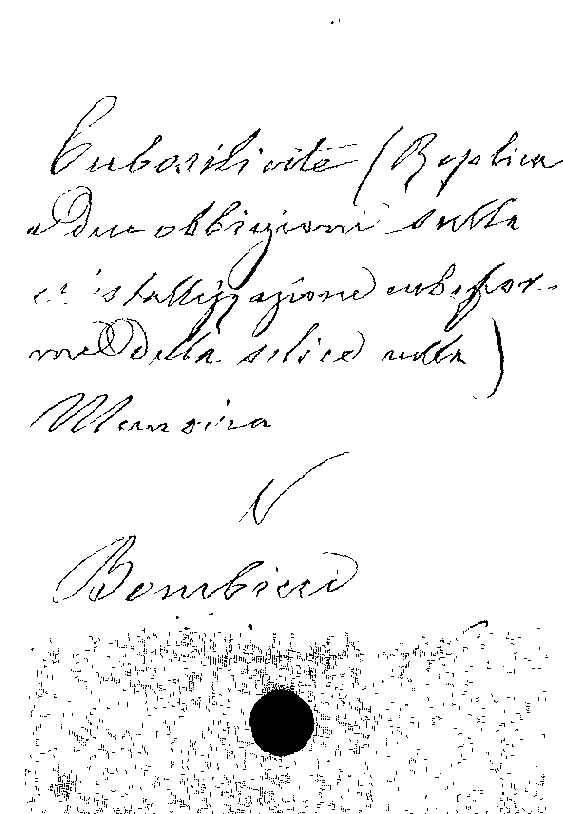 Cubosilicite (Replica
a due obbiezioni sulla
cristallizzazione cubifor-
me della silice nella)
Memoria
V
Bombicci